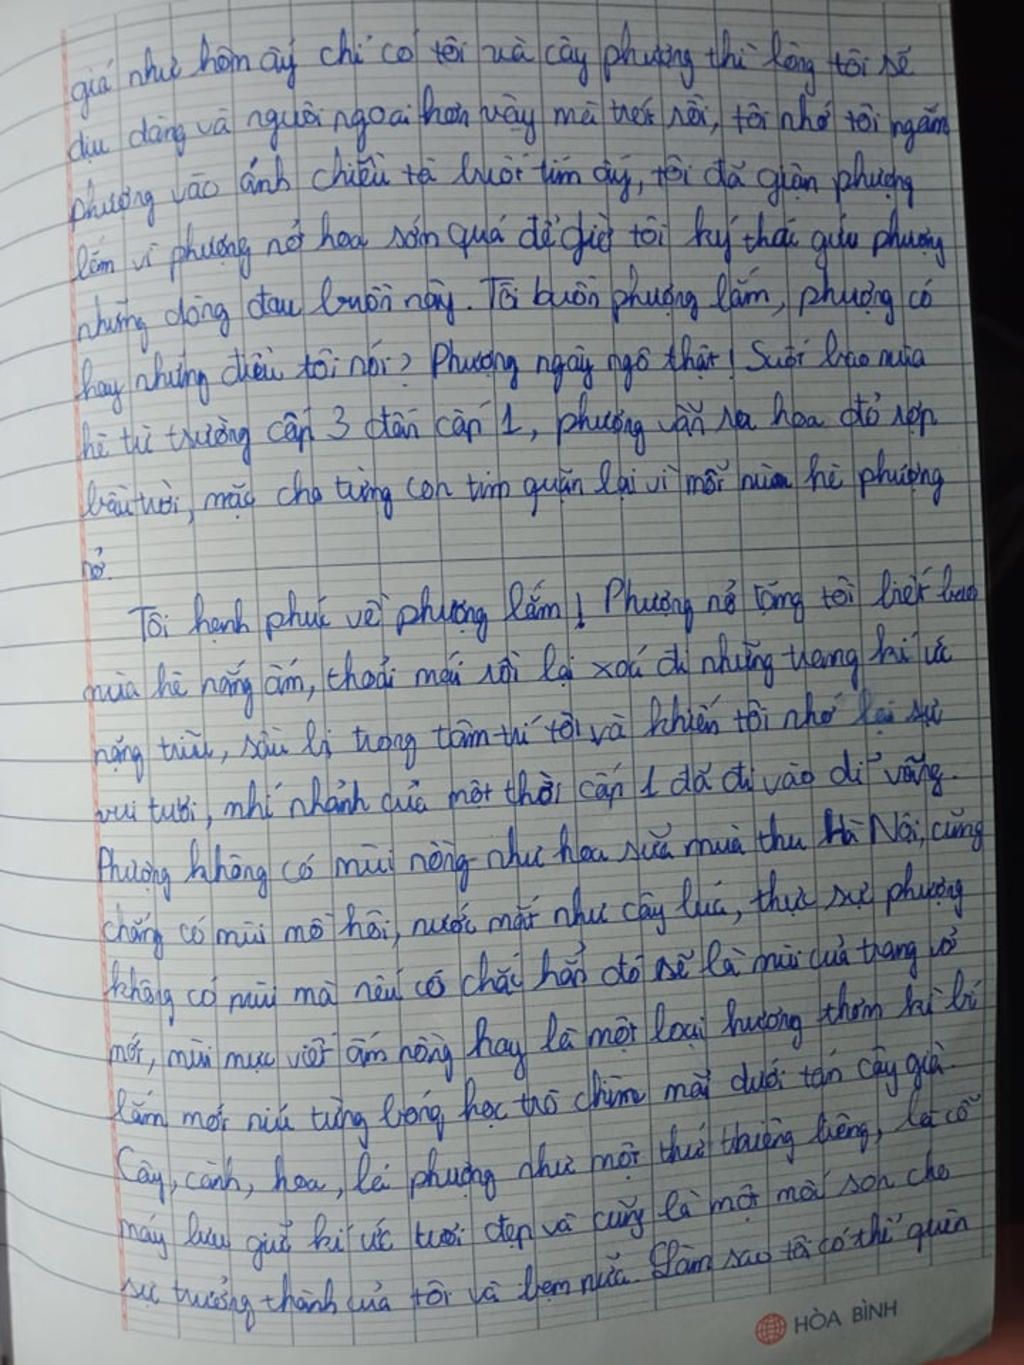 giá như hôm ấy chỉ có tôi và cây phượng thì lòng tôi sẽ
dịu dàng và nguôi ngoai hơn vậy mà trớt rồi, tôi nhớ tôi ngắm
phượng vào ánh chiều tà buổi tím ấy, tôi đã giận phượng
lắm vì phượng nở hoa sớm quá để giờ tôi ký thác giữa phượng
những dòng đau buồn này. Tôi buồn phượng lắm, phượng có
hay những điều tôi nói? Phượng ngây ngô thật! Suốt bao mùa
hè từ trường cấp 3 đến cấp 1, phượng vẫn ra hoa đỏ rợp
bầu trời, mặc cho từng con tim quặn lại vì mỗi mùa hè phượng
nở.
Tôi hạnh phúc về phượng lắm! Phượng nở tặng tôi biết bao
mùa hè nắng ấm, thoải mái rồi lại xoá đi những trang kí ức
nặng trĩu, sầu lị trong tâm trí tôi và khiến tôi nhớ lại sự
vui tươi, nhí nhảnh của một thời cấp 1 đã đi vào dĩ vãng.
Phượng không có mùi nồng như hoa sữa mùa thu Hà Nội, cũng
chẳng có mùi mồ hôi, nước mắt như cây lúa, thực sự phượng
không có mùi mà nếu có chắc hẳn đó sẽ là mùi của trang vở
mới, mùi mực viết ấm nồng hay là một loại hương thơm kì bí
lắm mới níu từng bóng học trò chìm mãi dưới tán cây già.
Cây, cành, hoa, lá phượng như một thứ thiêng liêng, là cỗ
máy lưu giữ kí ức tươi đẹp và cũng là một mốc son cho
sự trưởng thành của tôi và bạn nữa. Làm sao tôi có thể quên
HÒA BÌNH